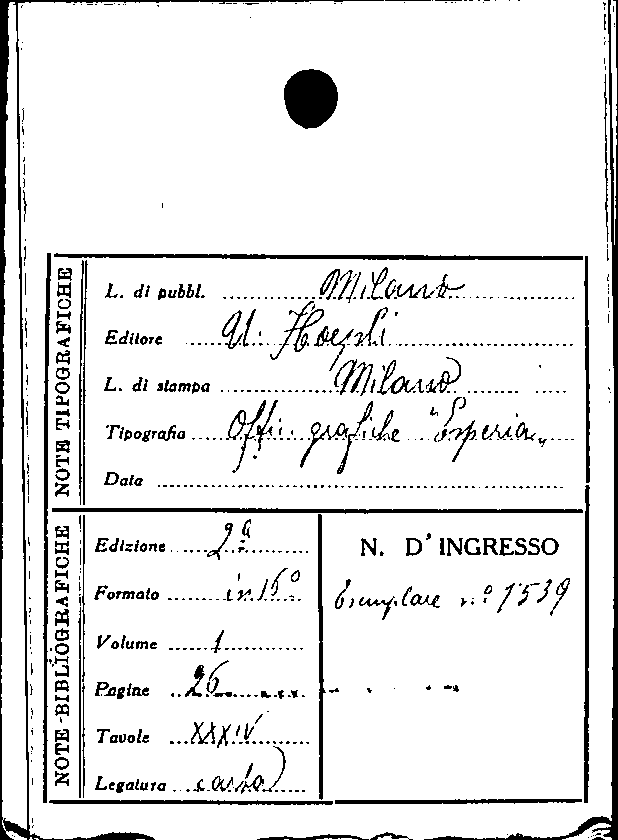 NOTE TIPOGRAFICHE
L. di pubbl. Milano
Editore U. Hoepli
L. di stampa Milano
Tipografia Offic. grafiche "Esperia"
Data
NOTE-BIBLIOGRAFICHE
Edizione 2ª
Formato in 16º
Volume 1
Pagine 26
Tavole XXXIV
Legatura carta
N. D'INGRESSO
Esemplare n.º 1539